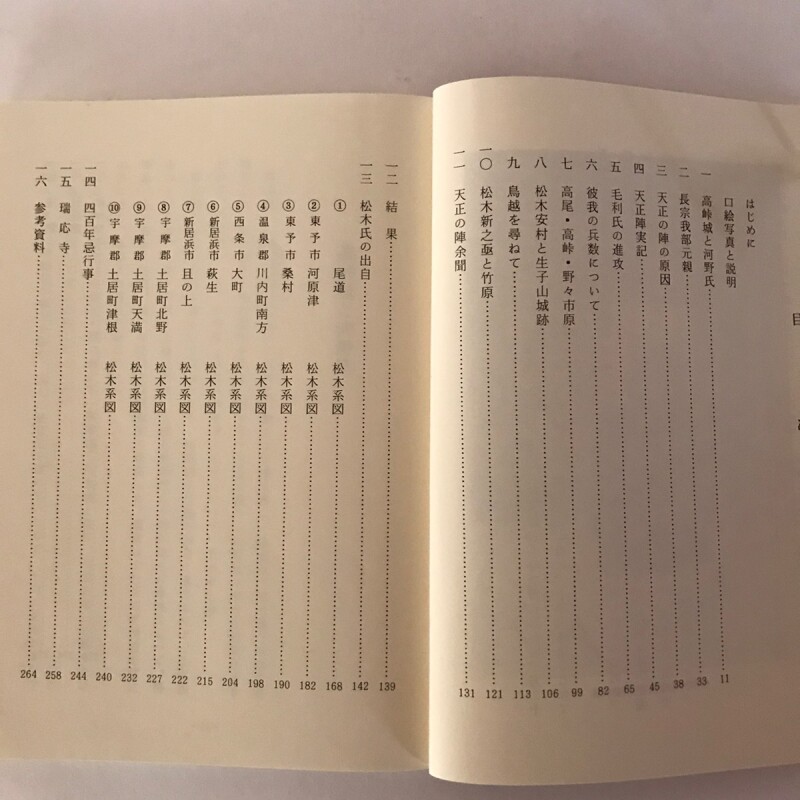 目
はじめに
口絵写真と説明 11
一 高峠城と河野氏 33
二 長宗我部元親 38
三 天正の陣の原因 45
四 天正陣実記 65
五 毛利氏の進攻 82
六 彼我の兵数について 99
七 高尾・高峠・野々市原 106
八 松木安村と生子山城跡 113
九 鳥越を尋ねて 121
一〇 松木新之亟と竹原 131
一一 天正の陣余聞
一二 結果 139
一三 松木氏の出自 142
① 尾道 松木系図 168
② 東予市 河原津 松木系図 182
③ 東予市 桑村 松木系図 190
④ 温泉郡 川内町南方 松木系図 198
⑤ 西条市 大町 松木系図 204
⑥ 新居浜市 萩生 松木系図 215
⑦ 新居浜市 且の上 松木系図 222
⑧ 宇摩郡 土居町北野 松木系図 227
⑨ 宇摩郡 土居町天満 松木系図 232
⑩ 宇摩郡 土居町津根 松木系図 240
一四 四百年忌行事 244
一五 瑞応寺 258
一六 参考資料 264